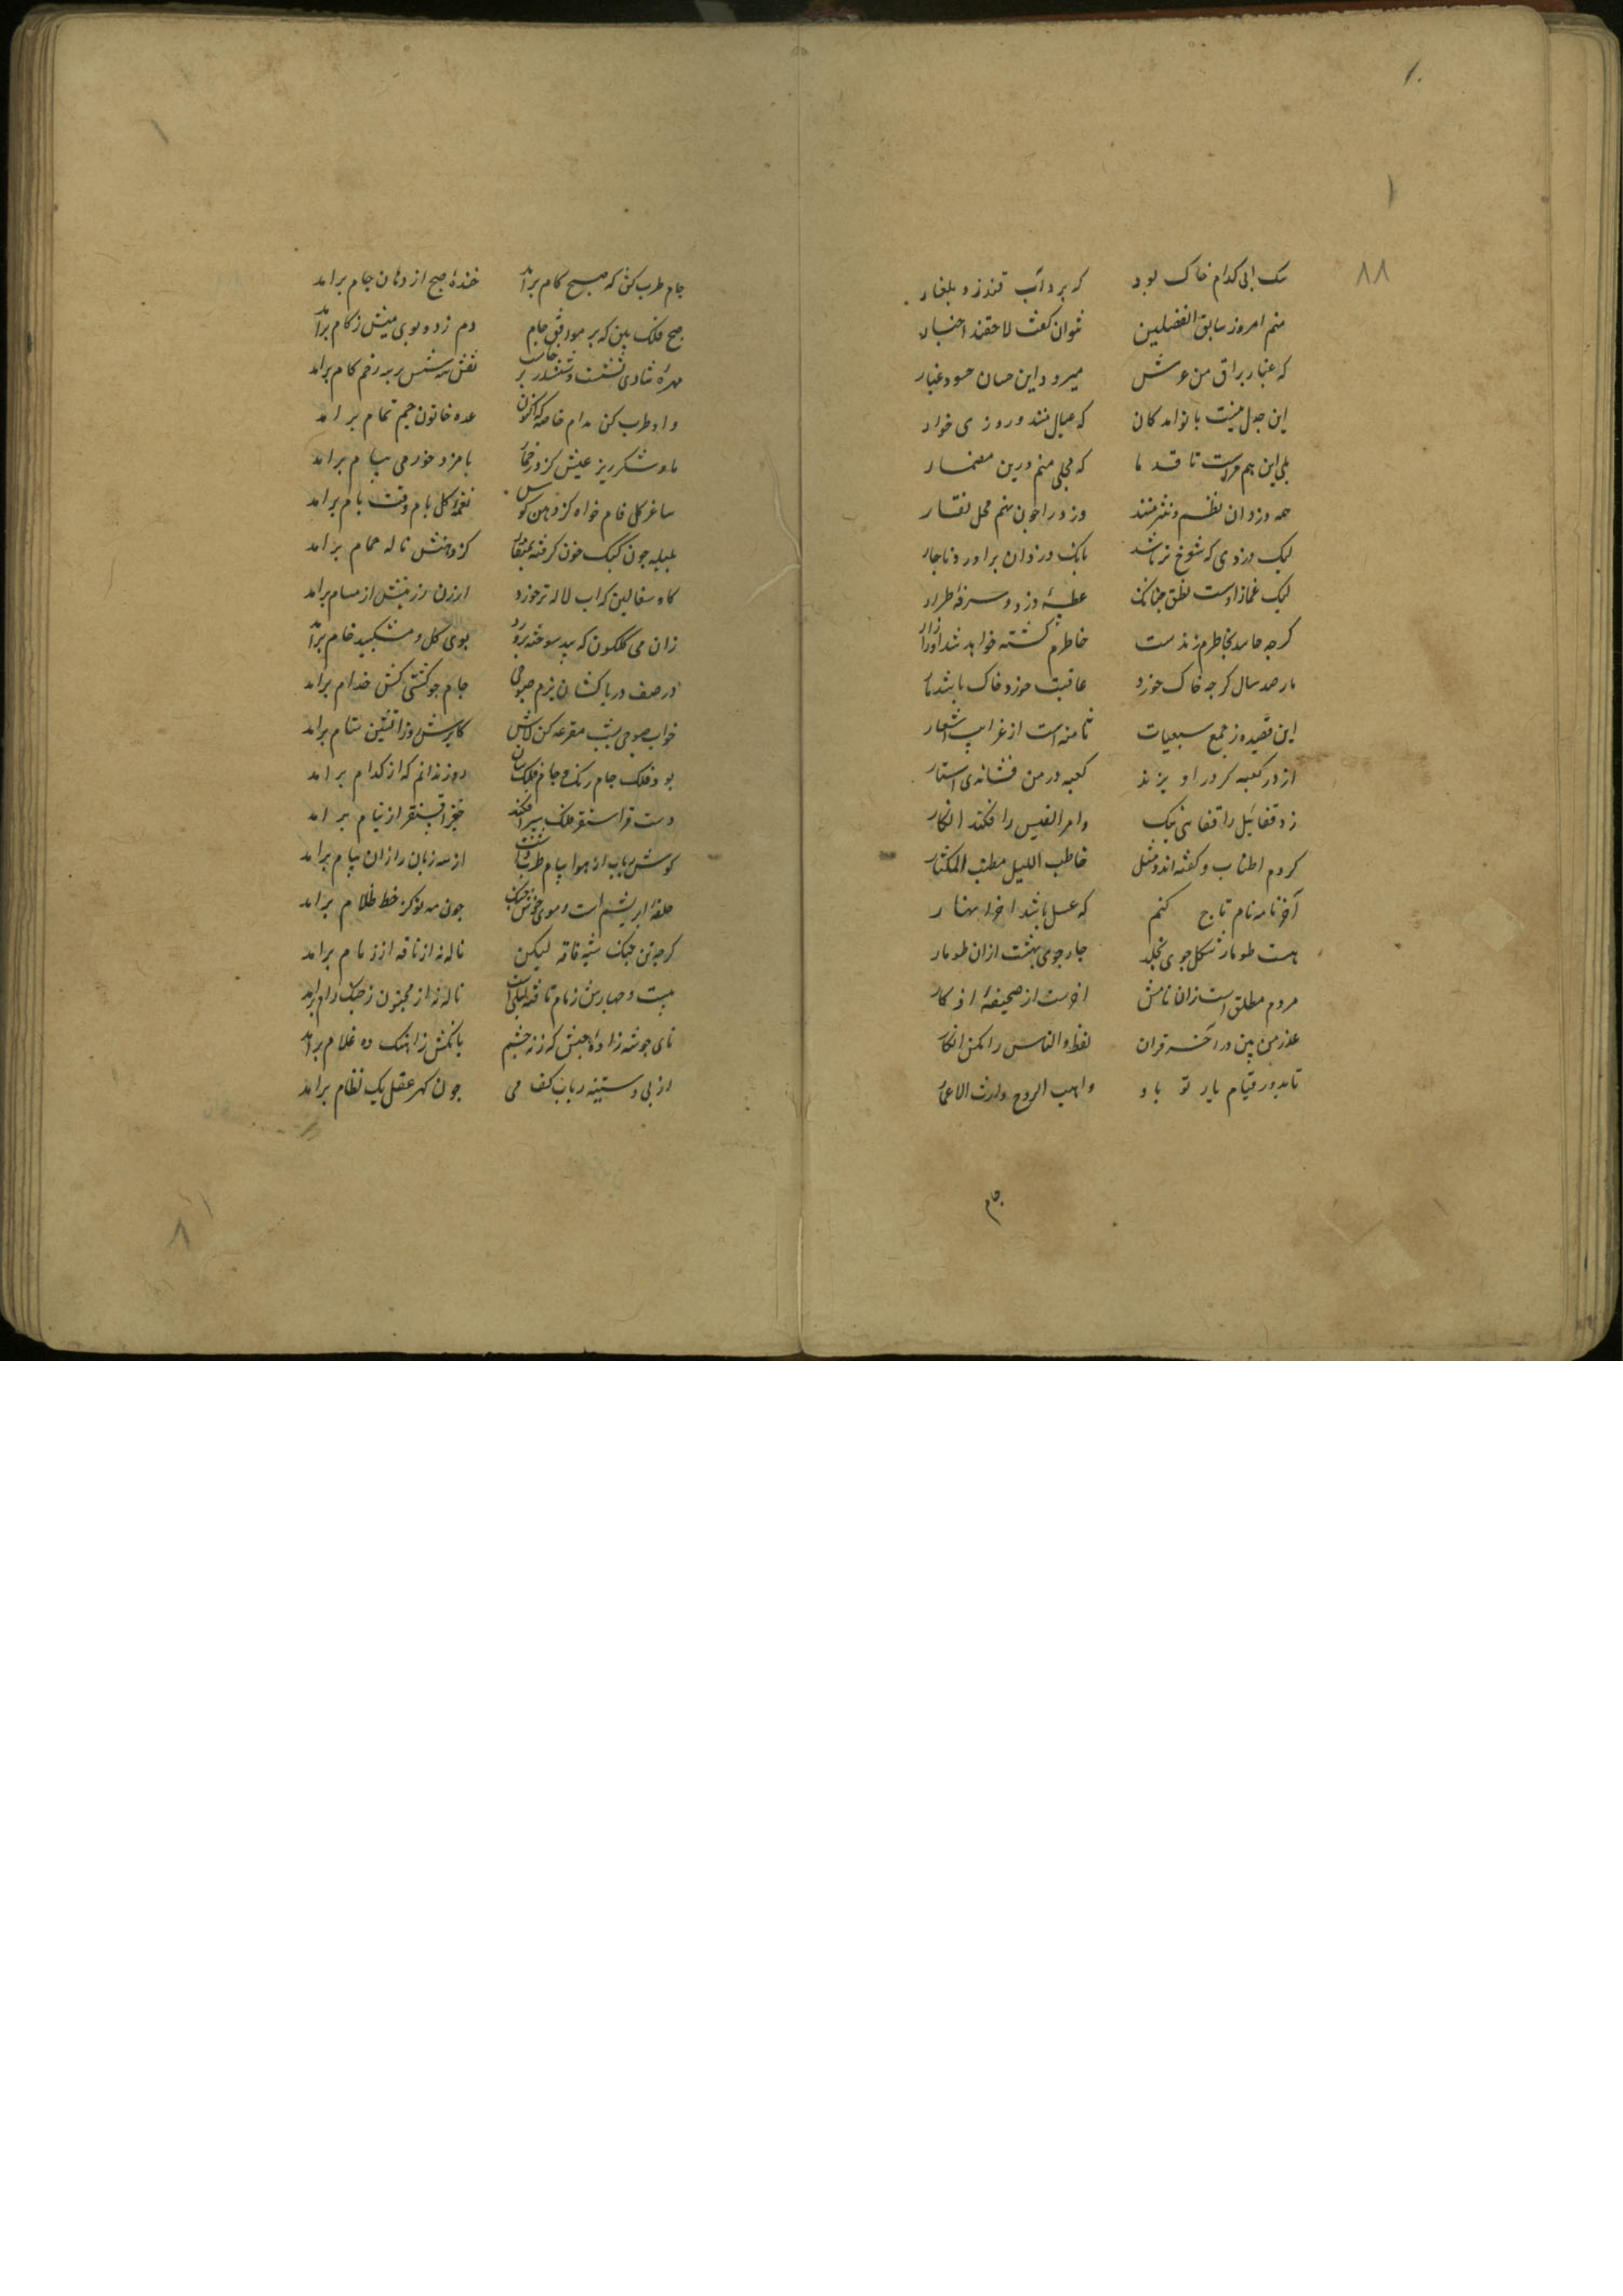 ۱۰
۸۸
سک ابی کدام خاک بود که برد آب قندز و بلغار
منم امروز سابق الفضلین نتوان گفت لاحقند اخبار
که غبار براق من عرش میرود این حسان حسود غبار
این جدل نیست با نوامدکان که عیال منند و روزی خوار
بلی این هم هست تا قدما که مجلی منم درین مضمار
همه دزدان نظم و نثر منند دزد را چون نهم محل نقار
لیک دزدی که شوخ تر باشد بانک دزدان براورد ناجار
لیک غماز اوست نطق جنانک عطسهٔ دزد و سرفهٔ طرار
کرجه حاسد بخاطرم زنده ست خاطرم کشته خواهد شد او را زار
مار صد سال کرجه خاک خورد عاقبت خورد خاک باشد مار
این قصیده ز جمع سبعیات ثامنه است از غرایب اشعار
از در کعبه کر در اویزند کعبه در من فشاندی استار
زد قفا نبک را قفایی نیک وامرا لقیس را فکند از کار
کردم اطناب و کفته اند مثل حاطب اللیل مطنب المکثار
آخر نامه نام تاج کنم که عسل باشد اخر انهار
هست طومار شکل جوی بخلد جار جوی بهشت ازان طومار
مردم مطلق است زان نامش اخرست از صحیفهٔ اذکار
عذر من بین در آخر قران لفظ والناس را مکن انکار
تا بدور قیام یار تو باد واهب الروح وارث الاعمار
جام طرب کش که صبح کام برامد خندهٔ صبح از دهان جام برامد
صبح فلک بین که بر موافق جام دم زد و بوی میش ز کام برامد
مهرهٔ شادی نشست و ششدر برخاست نقش سه شش بر سه زخم کام برامد
داد طرب کن مدام خاصه که اکنون عده خاتون جم تمام برامد
بامزد خورمی بیام برامد
ساغر کل فام خواه کز دهن کوس نغمهٔ کل بام وقت بام برامد
بلبله جون کبک خون کرفته بمنقار کز دهنش ناله حمام برامد
کاه سفالین که اب لاله تر خورد ارزن زرینش از مسام برامد
زان می کلکون که بید سوخته پرورد بوی کل و مشکبید خام برامد
در صف دریا کشان بزم صبوحی جام جو کشتی کش خرام برامد
بود فلک جام رنک و جام فلک سان روز ندانم که از کدام برامد
دست قراسنقر فلک سپر افکند خنجر اقسنقر از نیام برامد
کوش رباب از هوا پیام طرب داشت از سه زبان راز ان پیام برامد
حلقهٔ ابریشم است و موی خوش جنک جون مه نو کز خط ظلام برامد
کرجه تن جنک شبه ناقه لیکن ناله نه از ناقه از زمام برامد
بیست و جهارش زمام ناقه لیلی است ناله نه از مجنون ز جنک رام برامد
نای جو شه زادهٔ حبش که ز نه جشم بانکش از اهنک ده غلام برامد
از پی دستینه رباب کف می جون کهر عقد یک نظام برامد
۸